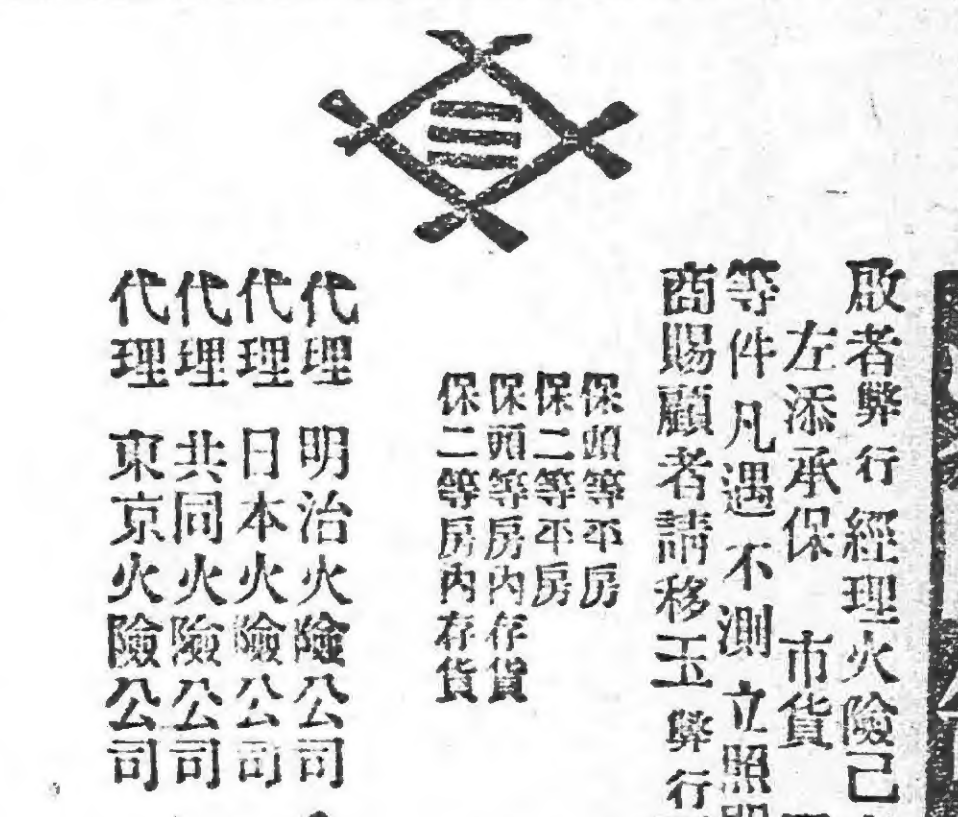 啟者弊行經理火險己
左添承保市貨
等件凡遇不測立照
商賜顧者請移玉弊行
保頭等平房
保二等平房
保頭等房內存貨
保二等房內存貨
代理 明治火險公司
代理 日本火險公司
代理 共同火險公司
代理 東京火險公司
三